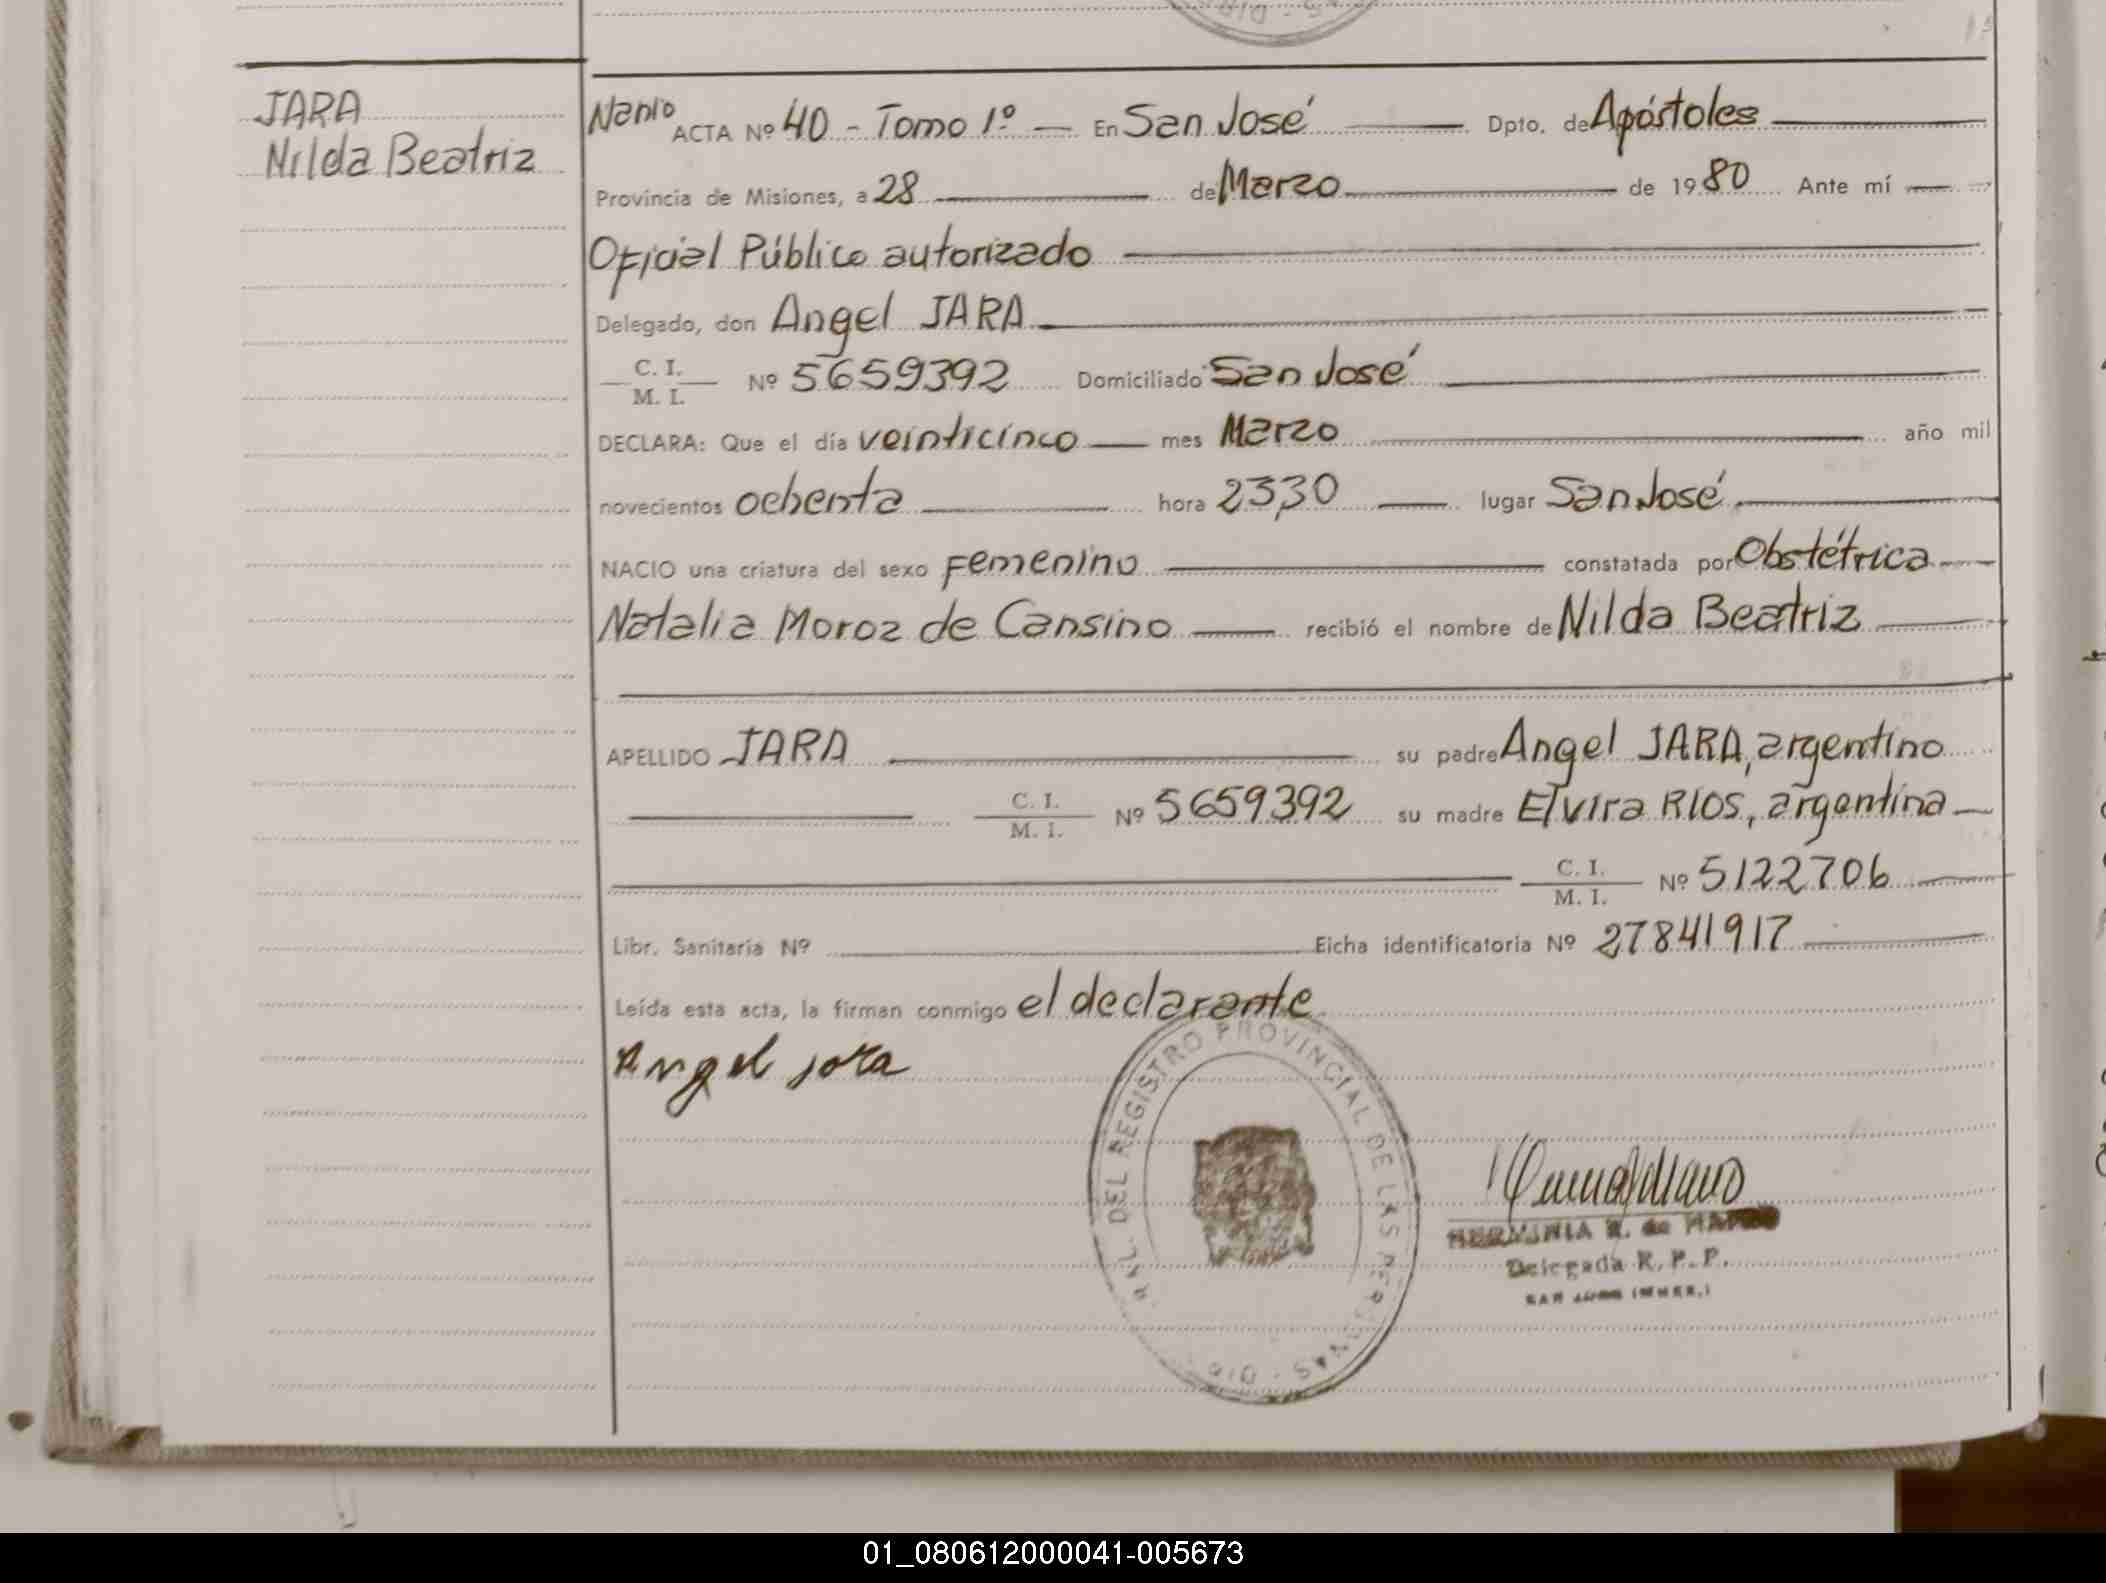 JARA
Nilda Beatriz
ACTA Nº 40 - Tomo 1º — En San José Dpto. de Apóstoles
Provincia de Misiones, a 28 de Marzo de 1980 Ante mí
Oficial Público autorizado
Delegado, don Angel JARA
C. I.
M. I. Nº 5659392 Domiciliado San José
DECLARA: Que el día veinticinco mes Marzo año mil
novecientos ochenta hora 23,30 lugar San José
NACIO una criatura del sexo Femenino constatada por Obstétrica
Natalia Moroz de Cansino recibió el nombre de Nilda Beatriz
APELLIDO JARA su padre Angel JARA, argentino
C. I.
M. I. Nº 5659392 su madre Elvira RIOS, argentina
C. I.
M. I. Nº 5122706
Libr. Sanitaria Nº Ficha identificatoria Nº 27841917
Leída esta acta, la firman conmigo el declarante
Angel jara
DEL REGISTRO PROVINCIAL DE LAS PERSONAS
HERMINIA R. de
Delegada R. P. P.
SAN JOSE (MNES.)
01_080612000041-005673